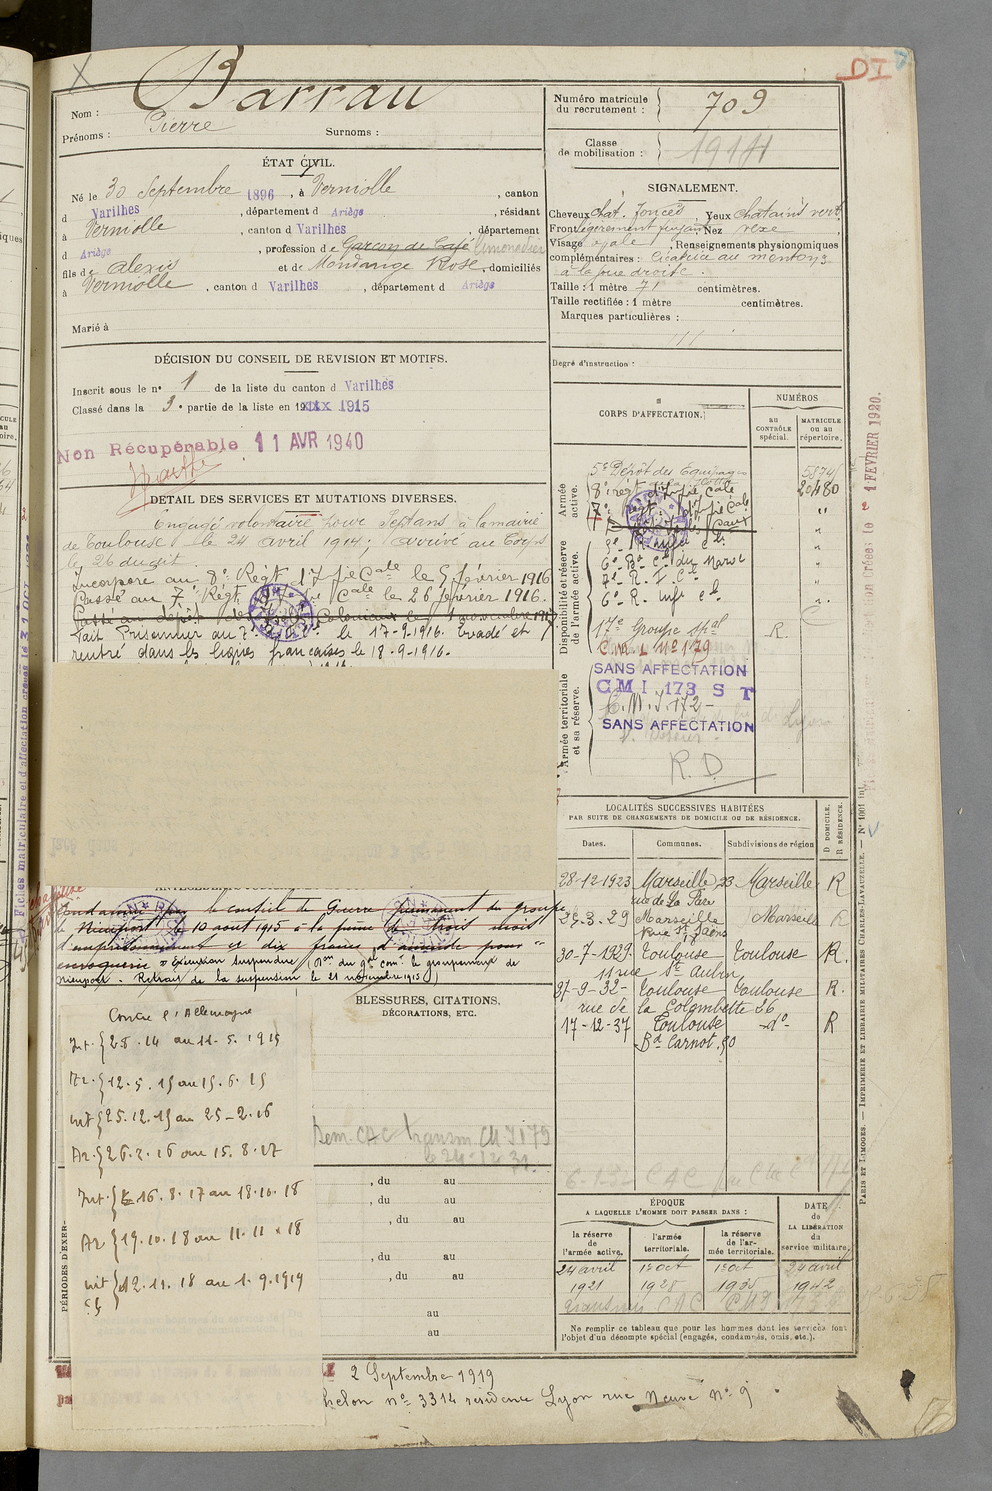 Barrau
Nom :
Prénoms : Pierre Surnoms :
ÉTAT CIVIL.
Né le 30 Septembre 1896, à Verniolle, canton
d Varilhes, département d Ariège, résidant
à Verniolle, canton d Varilhes, département
d Ariège, profession de Garçon de Café limonadier
fils de Alexis et de Mondange Rose, domiciliés
à Verniolle, canton d Varilhes, département d Ariège
Marié à
DÉCISION DU CONSEIL DE REVISION ET MOTIFS.
Inscrit sous le n° 1 de la liste du canton d Varilhes
Classé dans la 3e partie de la liste en 1915
Non Récupérable 11 AVR 1940
DÉTAIL DES SERVICES ET MUTATIONS DIVERSES.
Engagé volontaire pour Sept ans à la mairie
de Toulouse le 24 avril 1914; arrivé au Corps
le 26 du dit.
Incorporé au 8e Régt d'Infie Cale le 5 février 1916
Passé au 7e Régt Cale le 26 février 1916.
Passé au dépôt des Coloniaux le 1 novembre 1917
Fait Prisonnier au 7e le 17-9-1916. Evadé et
rentré dans les lignes françaises le 18-9-1916.
Condamné par le conseil de Guerre permanent du groupe
de Nieuport le 10 aout 1915 à la peine de trois mois
d'emprisonnement et dix francs d'amende pour
escroquerie Exécution suspendue (Don du Gal Comt le groupement de
Nieuport - Retrait de la suspension le 21 novembre 1915)
Contre l'Allemagne
Int. { 2.8.14 au 11.5.1915
Ar. { 12.5.15 au 15.6.15
Int { 25.12.15 au 25-2-16
Ar. { 26.2.16 au 15.8.17
Int. { 16.8.17 au 18.10.18
Ar { 19.10.18 au 11.11.18
Int { 12.11.18 au 1.9.1919
BLESSURES, CITATIONS,
DÉCORATIONS, ETC.
Dem. CAC transm. CMI 179
le 24-12-31.
PÉRIODES D'EXER-
, du au
, du au
, du au
, du au
, du au
au
au
2 Septembre 1919
helon n° 3314 résidence Lyon rue Neuve N° 9
DI
Numéro matricule
du recrutement : 709
Classe
de mobilisation : 1914
SIGNALEMENT.
Cheveux chat. foncés, Yeux chatains verts
Front légèrement fuyant Nez vexe
Visage ovale, Renseignements physionomiques
complémentaires : Cicatrice au menton &
à la joue droite.
Taille : 1 mètre 71 centimètres.
Taille rectifiée : 1 mètre centimètres.
Marques particulières :
Degré d'instruction :
CORPS D'AFFECTATION.
NUMÉROS
au
CONTRÔLE
spécial.
MATRICULE
ou au
répertoire.
Armée
active.
5e Dépôt des Equipages 5874
8e régt d'Infie Cale 20480
7e Régt d'Infie Cale "
Disponibilité et réserve
de l'armée active.
6e Bon Cl du Maroc
7e R. I. C.
6e R. Infie Cl.
17e Groupe spal R.
C.M.I. N° 179
Armée territoriale
et sa réserve.
SANS AFFECTATION
CMI. 173 S T
C.M.I. 172-
SANS AFFECTATION
R.D.
LOCALITÉS SUCCESSIVES HABITÉES
PAR SUITE DE CHANGEMENTS DE DOMICILE OU DE RÉSIDENCE.
D DOMICILE.
R RÉSIDENCE.
Dates. Communes. Subdivisions de région
28-12-1923 Marseille 23 Marseille R
rue de La Paix
25-3-29 Marseille Marseille R
Rue St Saëns
30-7-1929 Toulouse Toulouse R.
11 rue St Aubin
27-9-32 Toulouse Toulouse R.
rue de la Colombette 26
17-12-37 Toulouse -d°- R
Bd Carnot 50
ÉPOQUE
A LAQUELLE L'HOMME DOIT PASSER DANS :
la réserve
de
l'armée active.
l'armée
territoriale.
la réserve
de l'ar-
mée territoriale.
DATE
de
LA LIBÉRATION
du
service militaire.
24 avril 1er oct 1er oct 24 avril
1921 1928 1935 1942
Ne remplir ce tableau que pour les hommes dont les services font
l'objet d'un décompte spécial (engagés, condamnés, omis, etc.).
PARIS ET LIMOGES. — IMPRIMERIE ET LIBRAIRIE MILITAIRES CHARLES-LAVAUZELLE. — N° 1001 int.
1 FEVRIER 1920.